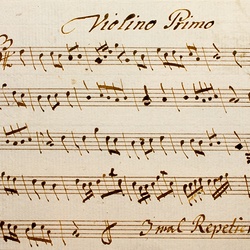 Violino Primo
3 mal Repetir